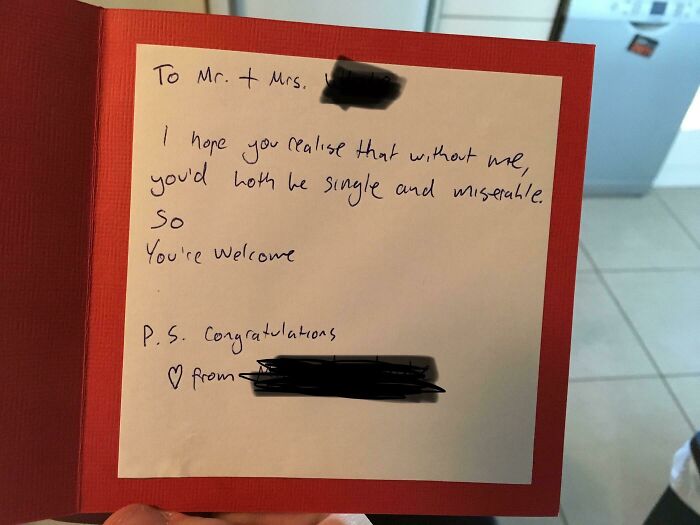 To Mr. + Mrs.
I hope you realise that without me,
you'd both be single and miserable.
So
You're Welcome
P.S. Congratulations
♡ from